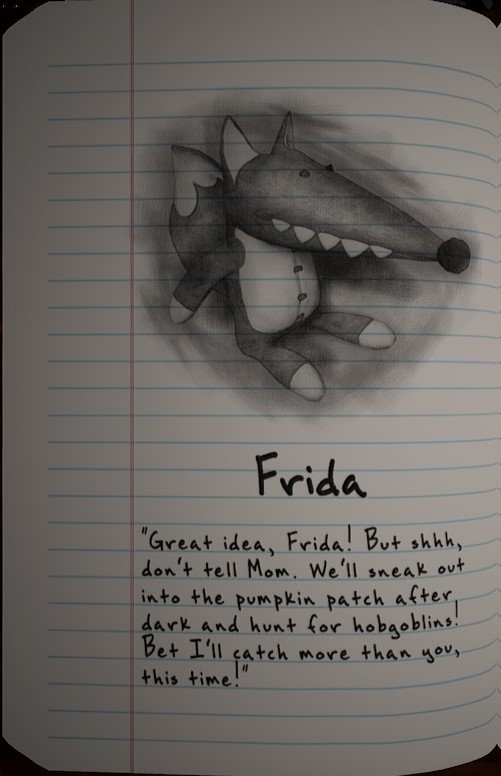 Frida
"Great idea, Frida! But shhh,
don't tell Mom. We'll sneak out
into the pumpkin patch after
dark and hunt for hobgoblins!
Bet I'll catch more than you,
this time!"